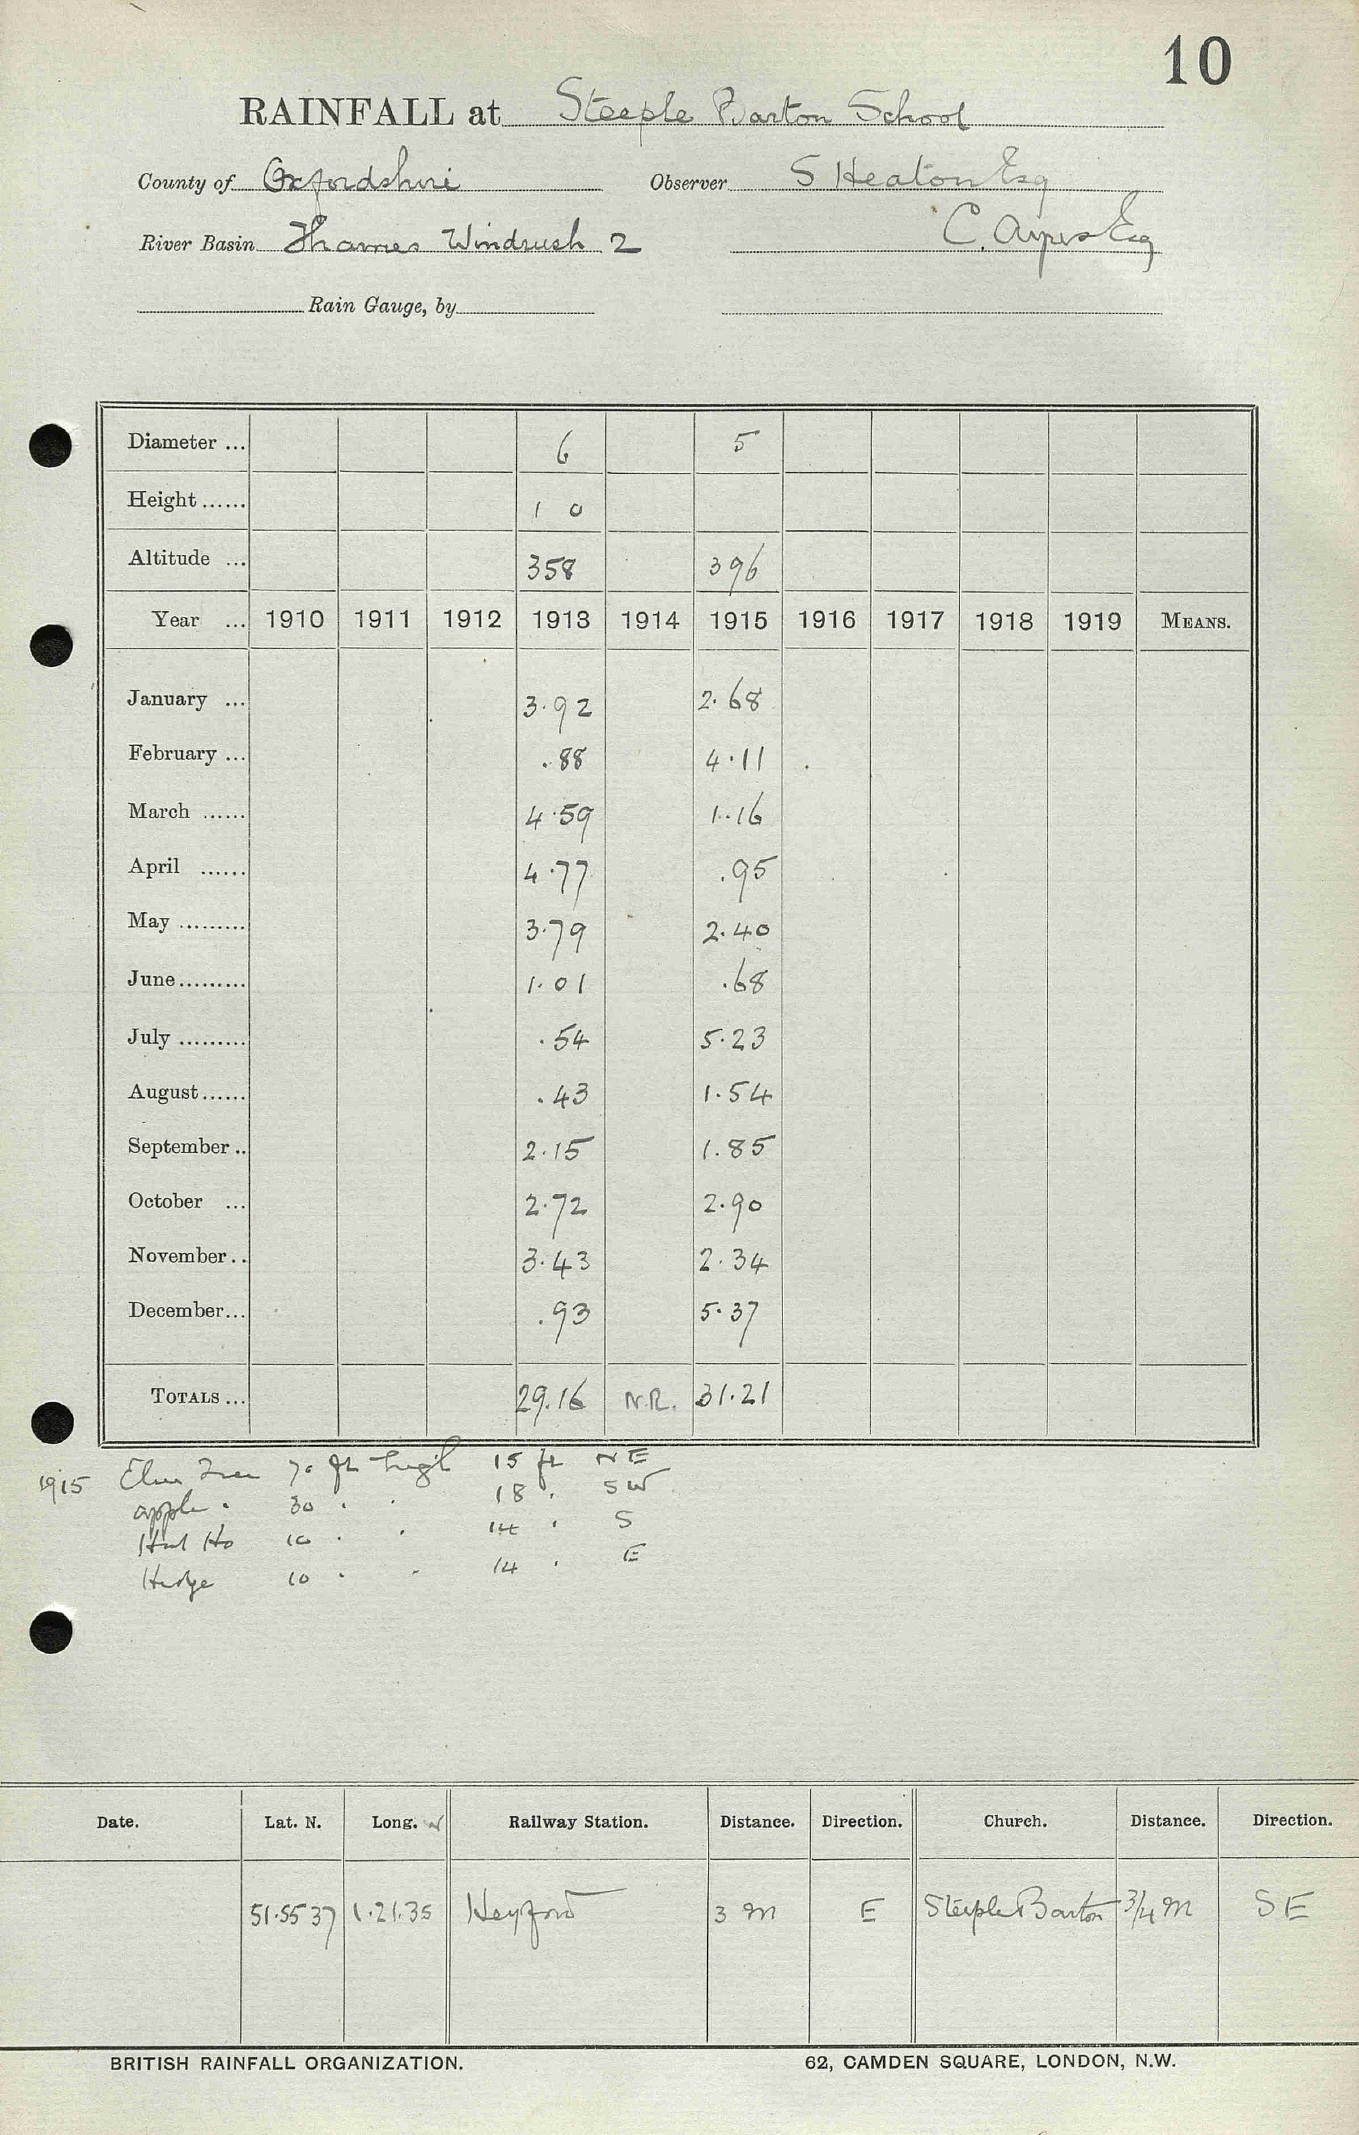 10
RAINFALL at Steeple Barton School
County of Oxfordshire Observer S Heaton Esq
River Basin Thames Windrush 2 C. Ayres Esq
Rain Gauge, by
Diameter ... 6 5
Height ...... 1 0
Altitude ... 358 396
Year ... 1910 1911 1912 1913 1914 1915 1916 1917 1918 1919 MEANS.
January ... 3.92 2.68
February ... .88 4.11
March ...... 4.59 1.16
April ...... 4.77 .95
May ......... 3.79 2.40
June ......... 1.01 .68
July ......... .54 5.23
August ...... .43 1.54
September .. 2.15 1.85
October ... 2.72 2.90
November .. 3.43 2.34
December ... .93 5.37
TOTALS ... 29.16 N.R. 31.21
1915 Elm Tree 70 ft high 15 ft NE
apple " 30 " " 18 " SW
Ho 10 " " 14 " S
Hedge 10 " " 14 " E
Date. Lat. N. Long. W Railway Station. Distance. Direction. Church. Distance. Direction.
51.55 37 1.21.35 Heyford 3 M E Steeple Barton 3/4 M SE
BRITISH RAINFALL ORGANIZATION. 62, CAMDEN SQUARE, LONDON, N.W.